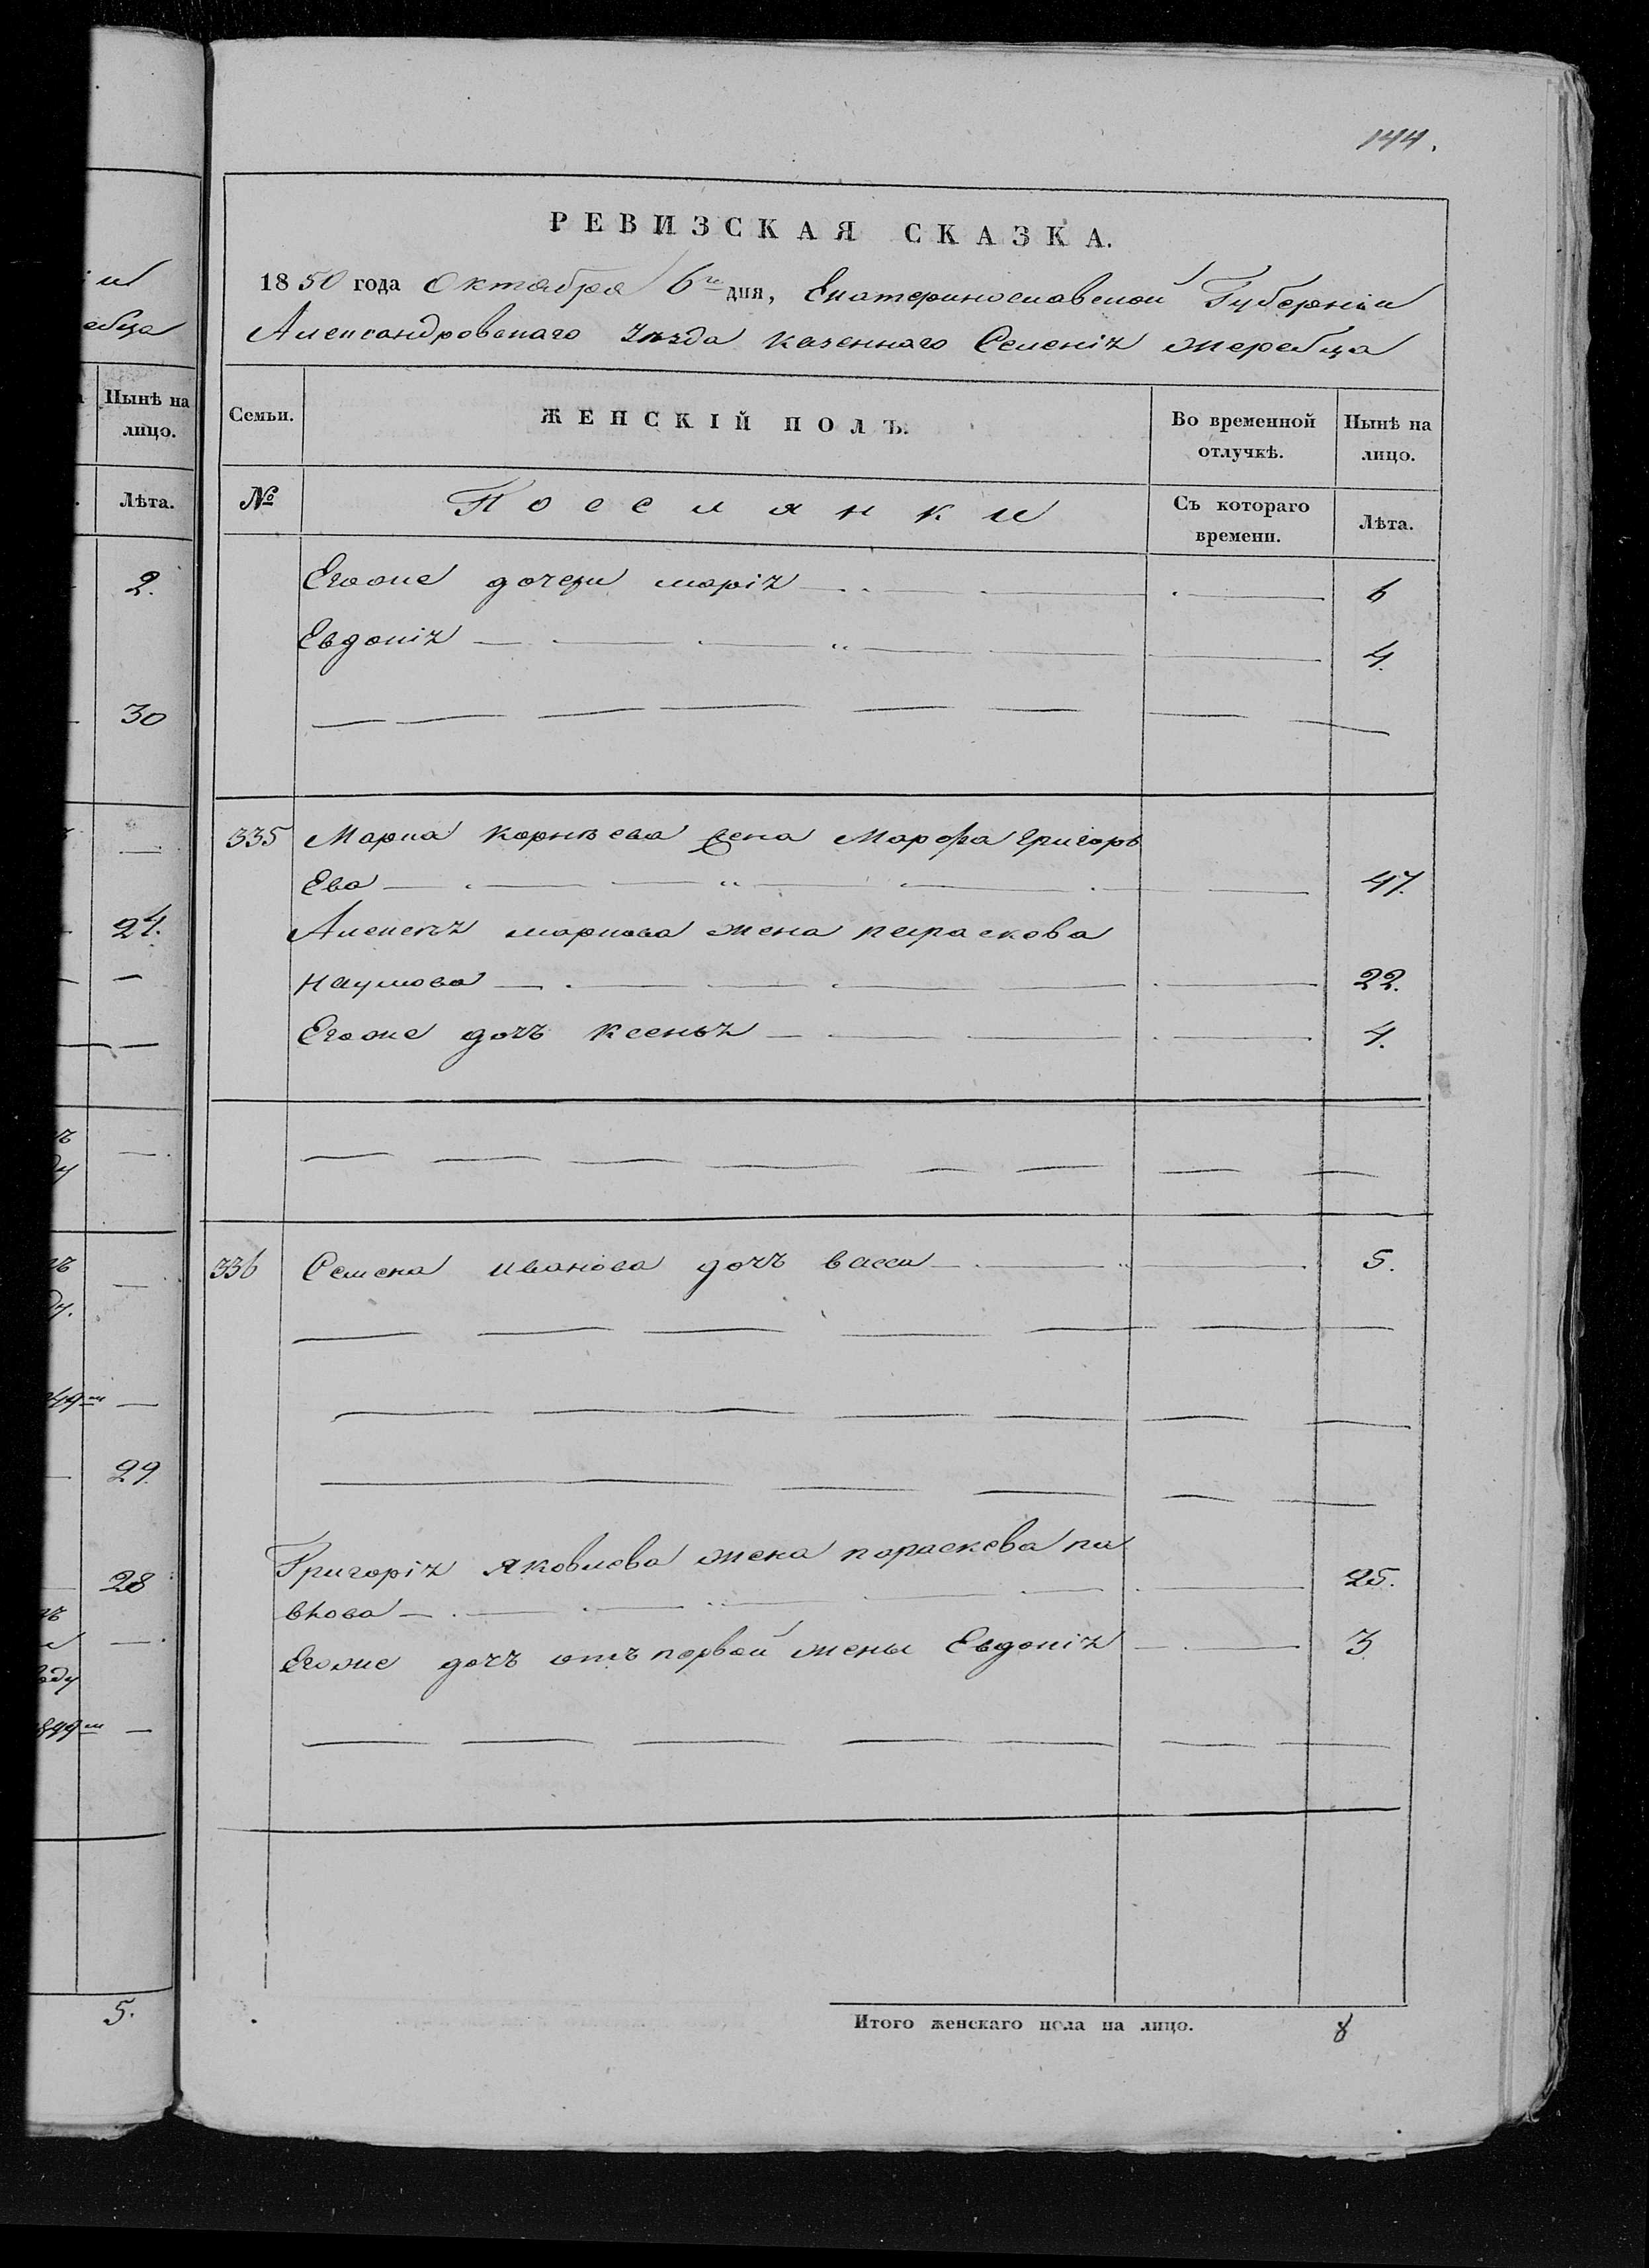 144.
РЕВИЗСКАЯ СКАЗКА.
1850 года Октября 6го дня, Екатеринославской Губерніи
Александровскаго уѣзда казеннаго Селенія жеребца
Семьи.
ЖЕНСКІЙ ПОЛЪ.
Во временной отлучкѣ.
Нынѣ на лицо.
№
Поселянки
Съ котораго времени.
Лѣта.
Егоже дочери марія 6
Евдокія 4.
335 Марка корнѣева жена Марфа григорь
Ева 47.
Алексѣя маркова жена параскова
наумова 22.
Егоже дочь ксенья 4.
336 Семена иванова дочь васса 5.
Григорія яковлева жена пораскева па
влова 25.
Егоже дочь отъ первой жены Евдокія 3.
Итого женскаго пола на лицо. 8
ебца
Нынѣ на
лицо.
Лѣта.
2.
30
24.
29.
28
5.